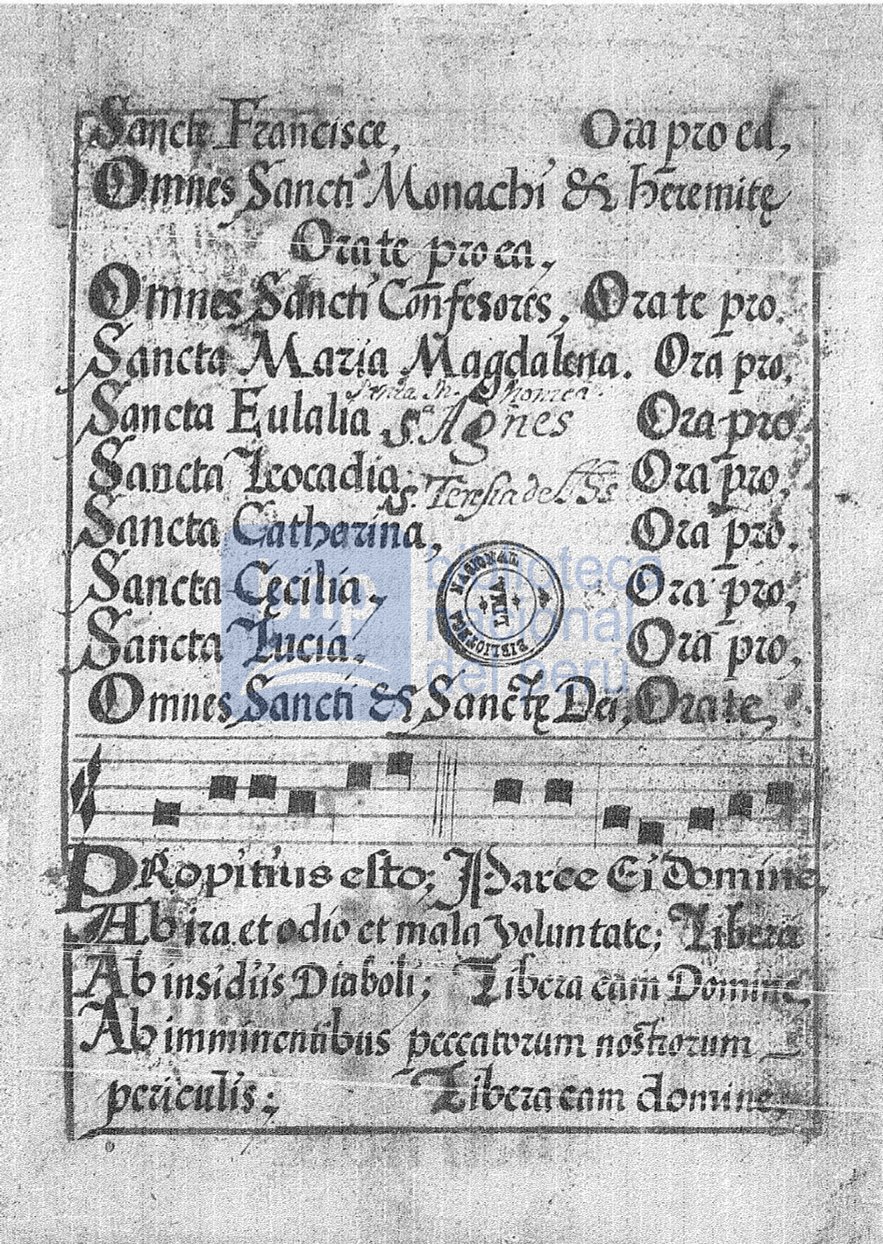 Sancte Francisce, Ora pro ea,
Omnes Sancti Monachi & heremitę
Orate pro ea,
Omnes Sancti Confesores, Orate pro.
Sancta Maria Magdalena. Ora pro.
Sancta Eulalia Ora pro
Sᵃ Agnes
Sancta Leocadia Ora pro,
S. Teresia de
Sancta Catherina, Ora pro.
Sancta Cęcilia, Ora pro,
Sancta Lucia. Ora pro,
Omnes Sancti & Sanctę Dei, Orate,
PRopitius esto; Parce Ei Domine,
Ab ira et odio et mala voluntate; Libera
Ab insidiis Diaboli; Libera eam Domine,
Ab imminentibus peccatorum nostrorum
periculis; Libera eam domine,
bnp biblioteca
nacional
del perú
BIBLIOTECA NACIONAL
LIMA